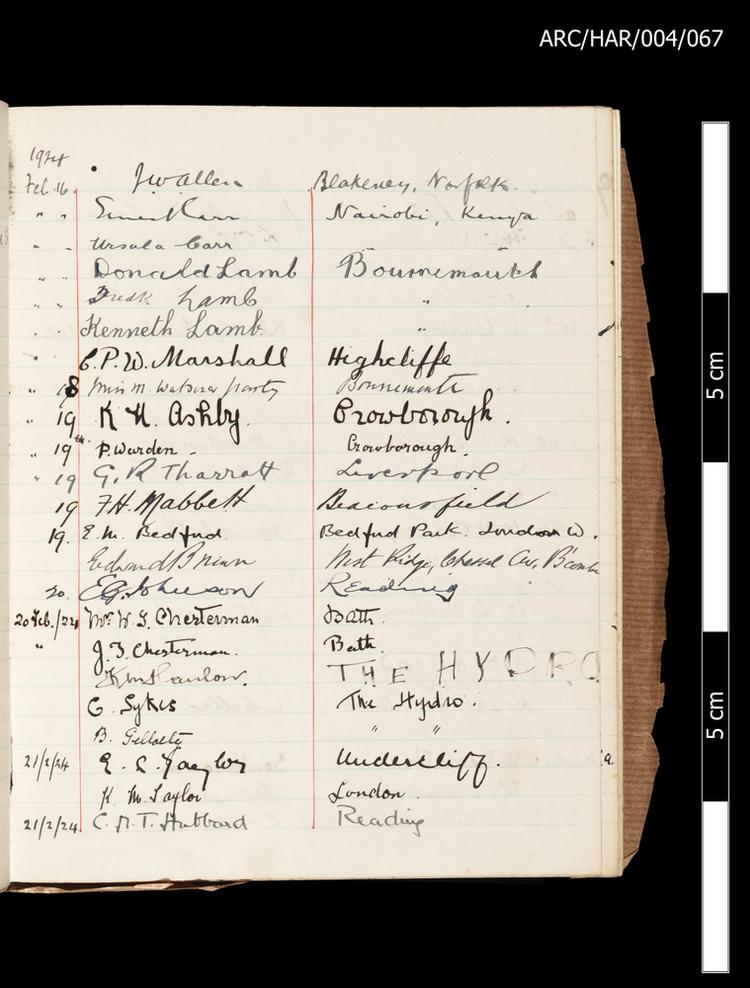 ARC/HAR/004/067
1924
Feb. 16. J W Allen Blakeney, Norfolk.
" " Karr Nairobi, Kenya
" " Ursula Carr "
" " Donald Lamb Bournemouth
" " Fredk Lamb "
" " Kenneth Lamb "
" C.P.W. Marshall Highcliffe
" 18 Miss M. Watson & party Bournemouth
" 19 K H. Ashby. Crowborough.
" 19th P. Warden. Crowborough.
" 19 G. R Tharratt Liverpool
19 F.H. Mabbett Beaconsfield
19. E. M. Bedford Bedford Park. London W.
Edward West Ridge, Av, B'combe
20. E.G. Johnson Reading
20 Feb./24 Mrs W. J. Chesterman Bath.
" J. J. Chesterman. Bath.
Hanlow. THE HYDRO
G. Sykes The Hydro.
B. " "
21/2/24 E. C. Taylor Undercliff.
K. M. Taylor London.
21/2/24 C. M. T. Hubbard Reading
5 cm
5 cm